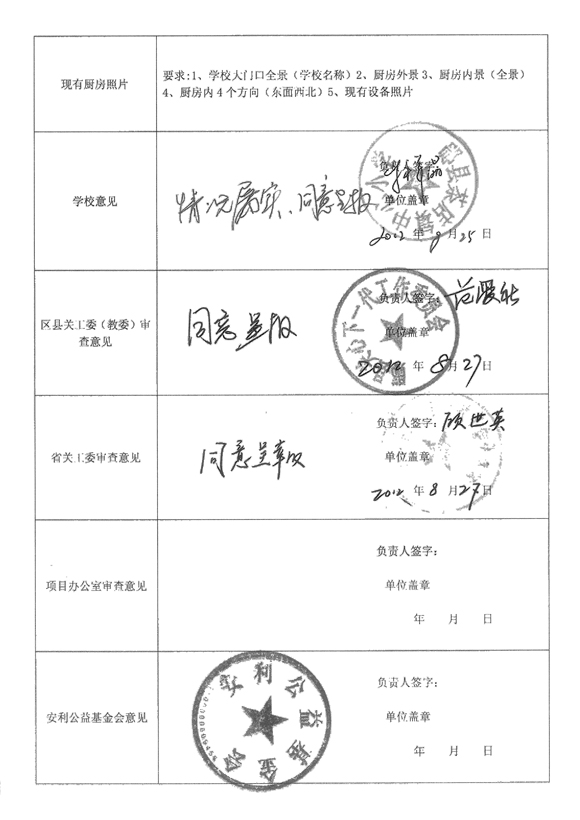 现有厨房照片
要求:1、学校大门口全景（学校名称）2、厨房外景 3、厨房内景（全景）
4、厨房内4个方向（东面西北）5、现有设备照片
学校意见
情况属实、同意呈报
单位盖章
2012年8月25日
区县关工委（教委）审
查意见
同意呈报
负责人签字:
单位盖章
2012年8月27日
心下一代工作委员会
省关工委审查意见
同意呈报
负责人签字: 顾世英
单位盖章
2012年8月27日
项目办公室审查意见
负责人签字:
单位盖章
年 月 日
安利公益基金会意见
安利公益基金会
负责人签字:
单位盖章
年 月 日